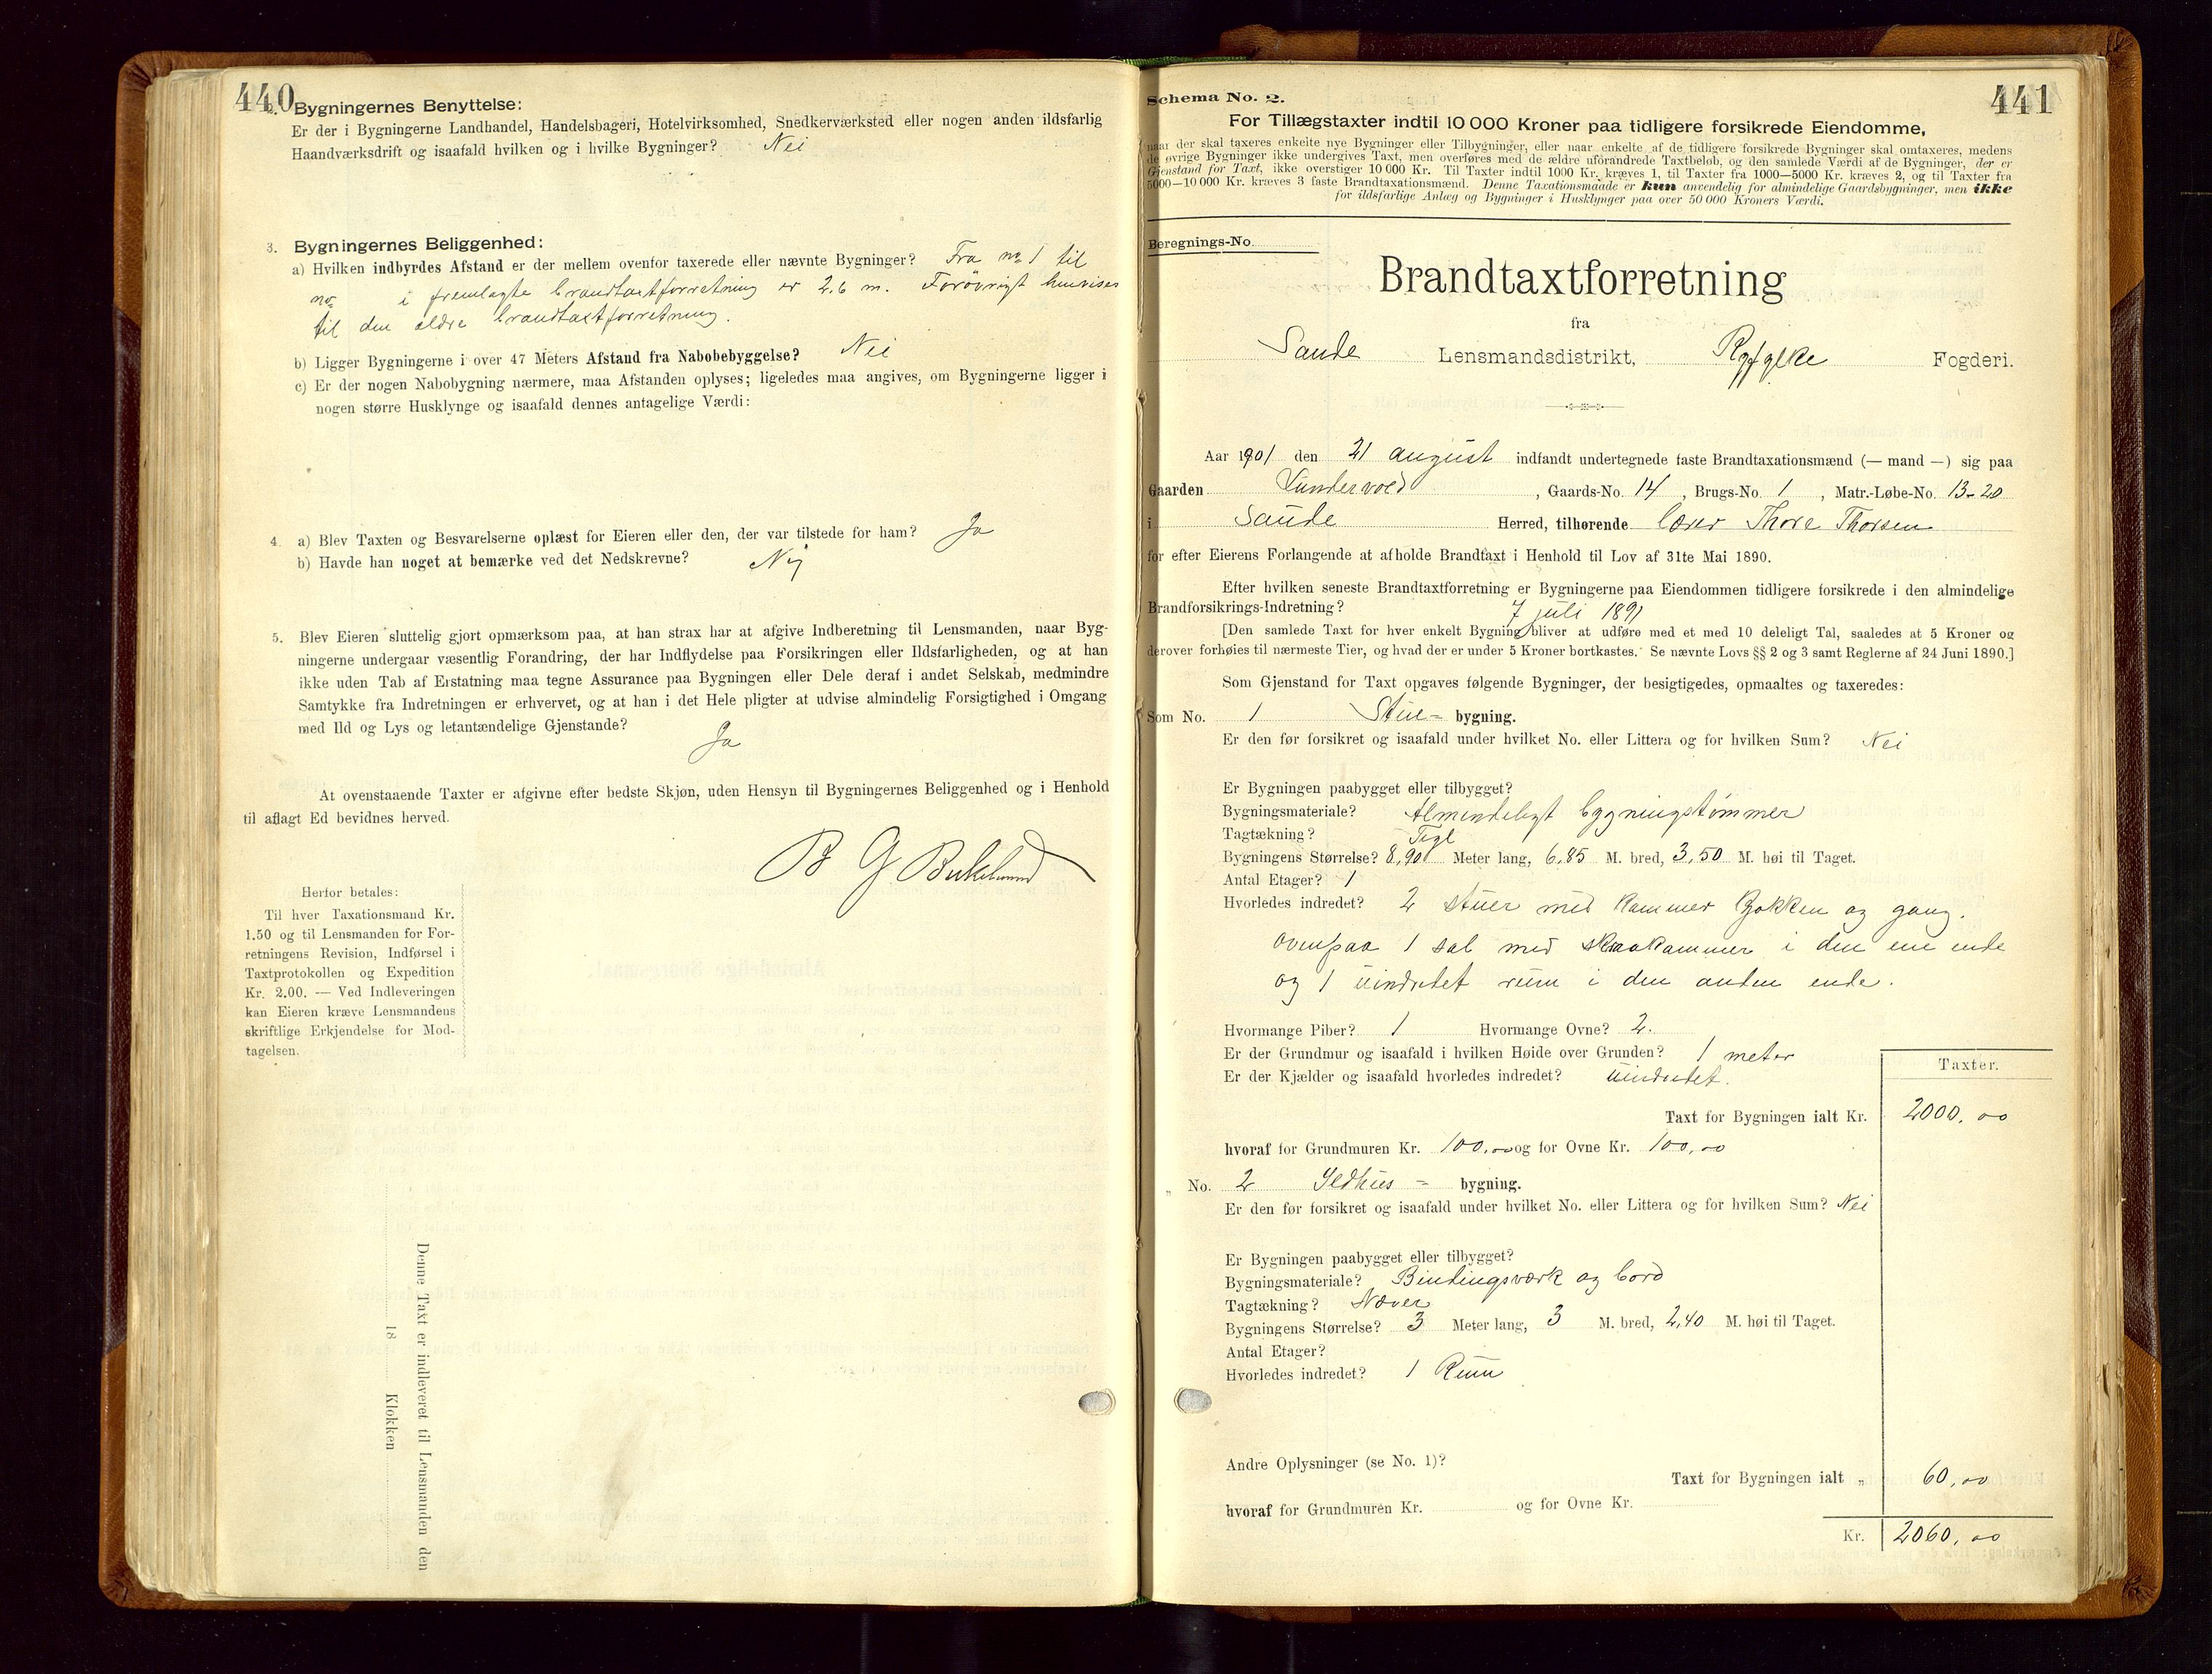 440
2. Bygningernes Benyttelse:
Er der i Bygningerne Landhandel, Handelsbageri, Hotelvirksomhed, Snedkerværksted eller nogen anden ildsfarlig
Haandværksdrift og isaafald hvilken og i hvilke Bygninger? Nei
3. Bygningernes Beliggenhed:
a) Hvilken indbyrdes Afstand er der mellem ovenfor taxerede eller nævnte Bygninger? Fra no 1 til
no i fremlagte brandtaxtforretning er 2,6 m. Forøvrigt henvises
til den ældre brandtaxtforretning.
b) Ligger Bygningerne i over 47 Meters Afstand fra Nabobebyggelse? Nei
c) Er der nogen Nabobygning nærmere, maa Afstanden oplyses; ligeledes maa angives, om Bygningerne ligger i
nogen større Husklynge og isaafald dennes antagelige Værdi:
4. a) Blev Taxten og Besvarelserne oplæst for Eieren eller den, der var tilstede for ham? Ja
b) Havde han noget at bemærke ved det Nedskrevne? Nej
5. Blev Eieren sluttelig gjort opmærksom paa, at han strax har at afgive Indberetning til Lensmanden, naar Byg-
ningerne undergaar væsentlig Forandring, der har Indflydelse paa Forsikringen eller Ildsfarligheden, og at han
ikke uden Tab af Erstatning maa tegne Assurance paa Bygningen eller Dele deraf i andet Selskab, medmindre
Samtykke fra Indretningen er erhvervet, og at han i det Hele pligter at udvise almindelig Forsigtighed i Omgang
med Ild og Lys og letantændelige Gjenstande?
Ja
At ovenstaaende Taxter er afgivne efter bedste Skjøn, uden Hensyn til Bygningernes Beliggenhed og i Henhold
til aflagt Ed bevidnes herved.
B G Birkeland
Herfor betales:
Til hver Taxationsmand Kr.
1.50 og til Lensmanden for For-
retningens Revision, Indførsel i
Taxtprotokollen og Expedition
Kr. 2.00. — Ved Indleveringen
kan Eieren kræve Lensmandens
skriftlige Erkjendelse for Mod-
tagelsen.
Denne Taxt er indleveret til Lensmanden den
18 Klokken
441
Schema No. 2.
For Tillægstaxter indtil 10 000 Kroner paa tidligere forsikrede Eiendomme,
naar der skal taxeres enkelte nye Bygninger eller Tilbygninger, eller naar enkelte af de tidligere forsikrede Bygninger skal omtaxeres, medens
de øvrige Bygninger ikke undergives Taxt, men overføres med de ældre uforandrede Taxtbeløb, og den samlede Værdi af de Bygninger, der er
Gjenstand for Taxt, ikke overstiger 10 000 Kr. Til Taxter indtil 1000 Kr. kræves 1, til Taxter fra 1000—5000 Kr. kræves 2, og til Taxter fra
5000—10 000 Kr. kræves 3 faste Brandtaxationsmænd. Denne Taxationsmaade er kun anvendelig for almindelige Gaardsbygninger, men ikke
for ildsfarlige Anlæg og Bygninger i Husklynger paa over 50 000 Kroners Værdi.
Beregnings-No.
Brandtaxtforretning
fra
Saude Lensmandsdistrikt, Ryfylke Fogderi.
Aar 1901 den 21 august indfandt undertegnede faste Brandtaxationsmænd (— mand —) sig paa
Gaarden Lundervold, Gaards-No. 14, Brugs-No. 1, Matr.-Løbe-No. 13-20
i Saude Herred, tilhørende lærer Thore Thorsen
for efter Eierens Forlangende at afholde Brandtaxt i Henhold til Lov af 31te Mai 1890.
Efter hvilken seneste Brandtaxtforretning er Bygningerne paa Eiendommen tidligere forsikrede i den almindelige
Brandforsikrings-Indretning? 7 juli 1891
[Den samlede Taxt for hver enkelt Bygning bliver at udføre med et med 10 deleligt Tal, saaledes at 5 Kroner og
derover forhøies til nærmeste Tier, og hvad der er under 5 Kroner bortkastes. Se nævnte Lovs §§ 2 og 3 samt Reglerne af 24 Juni 1890.]
Som Gjenstand for Taxt opgaves følgende Bygninger, der besigtigedes, opmaaltes og taxeredes:
Som No. 1 Stue- bygning.
Er den før forsikret og isaafald under hvilket No. eller Littera og for hvilken Sum? Nei
Er Bygningen paabygget eller tilbygget?
Bygningsmateriale? Almindeligt bygningstømmer
Tagtækning? Tegl
Bygningens Størrelse? 8,90 Meter lang, 6,85 M. bred, 3,50 M. høi til Taget.
Antal Etager? 1
Hvorledes indredet? 2 stuer med kammer kjøkken og gang.
ovenpaa 1 sal med skraakammer i den ene ende
og 1 uindredet rum i den anden ende.
Hvormange Piber? 1 Hvormange Ovne? 2.
Er der Grundmur og isaafald i hvilken Høide over Grunden? 1 meter
Er der Kjælder og isaafald hvorledes indredet? uindredet.
Taxter.
Taxt for Bygningen ialt Kr. 2000,00
hvoraf for Grundmuren Kr. 100,00 og for Ovne Kr. 100,00
„ No. 2 Ildhus- bygning.
Er den før forsikret og isaafald under hvilket No. eller Littera og for hvilken Sum? Nei
Er Bygningen paabygget eller tilbygget?
Bygningsmateriale? Bindingsværk og bord
Tagtækning? Næver
Bygningens Størrelse? 3 Meter lang, 3 M. bred, 2,40 M. høi til Taget.
Antal Etager?
Hvorledes indredet? 1 Rum
Andre Oplysninger (se No. 1)?
Taxt for Bygningen ialt „ 60,00
hvoraf for Grundmuren Kr. og for Ovne Kr.
Kr. 2060,00